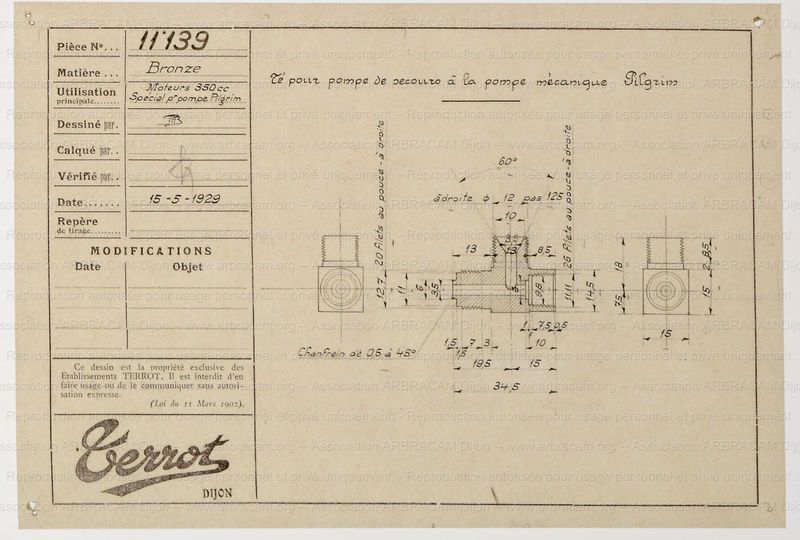 Pièce N°... 11139
Matière ... Bronze
Utilisation Moteurs 350cc
principale........ Spécial pr pompe Pilgrim
Dessiné par.
Calqué par..
Vérifié par..
Date........ 15-5-1929
Repère
de tirage.........
MODIFICATIONS
Date Objet
Ce dessin est la propriété exclusive des
Etablissements TERROT. Il est interdit d'en
faire usage ou de le communiquer sans autori-
sation expresse.
(Loi du 11 Mars 1902).
Terrot
DIJON
Té pour pompe de secours à la pompe mécanique Pilgrim
60°
à droite φ 12 pas 125
10
3,5
13 13 8,5
20 filets au pouce - à droite
12,7
11
6
3,5
9,8
26 filets au pouce - à droite
11,11
14,5
18
7,5
2 8,5
15
15
1 7,5 0,5
1,5 7 3 10
1,5
Chanfrein de 0,5 à 45°
19,5 15
34,5
Association ARBRACAM Dijon – www.arbracam.org – Association ARBRACAM Dijon
Reproduction autorisée pour usage personnel et privé uniquement.